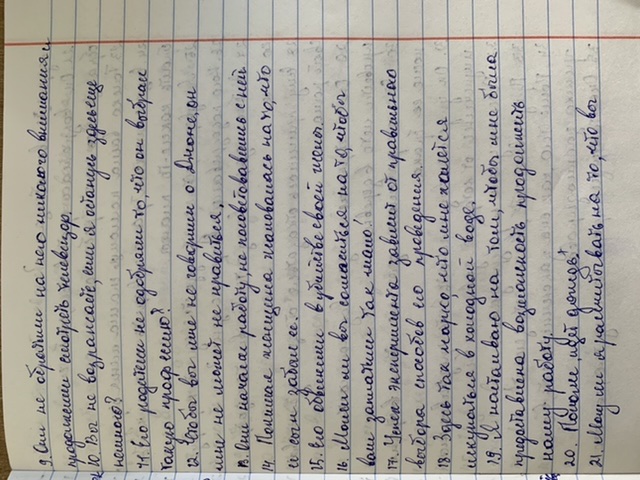 9. Они не обратили на него никакого внимания и
продолжали смотреть телевизор.
10. Вы не возражаете, если я останусь здесь еще
немного?
11. Его родители не одобряли то, что он выбрал
такую профессию?
12. Что бы вы мне не говорили о Джоне, он
мне не может не нравиться.
13. Они начали работу, не посоветовавшись с ней
14. Пожилая женщина жаловалась на то, что
ее сын забыл ее.
15. Его обвинили в убийстве своей жены.
16. Могли ли вы согласиться на то, чтобы
вам заплатили так мало?
17. Успех эксперимента зависит от правильного
выбора способов его проведения.
18. Здесь так жарко, что мне хочется
искупаться в холодной воде.
19. Я настаиваю на том, чтобы мне была
предоставлена возможность продолжить
нашу работу.
20. Пошли идет дождь
21. Могу ли я рассчитывать на то, что вы